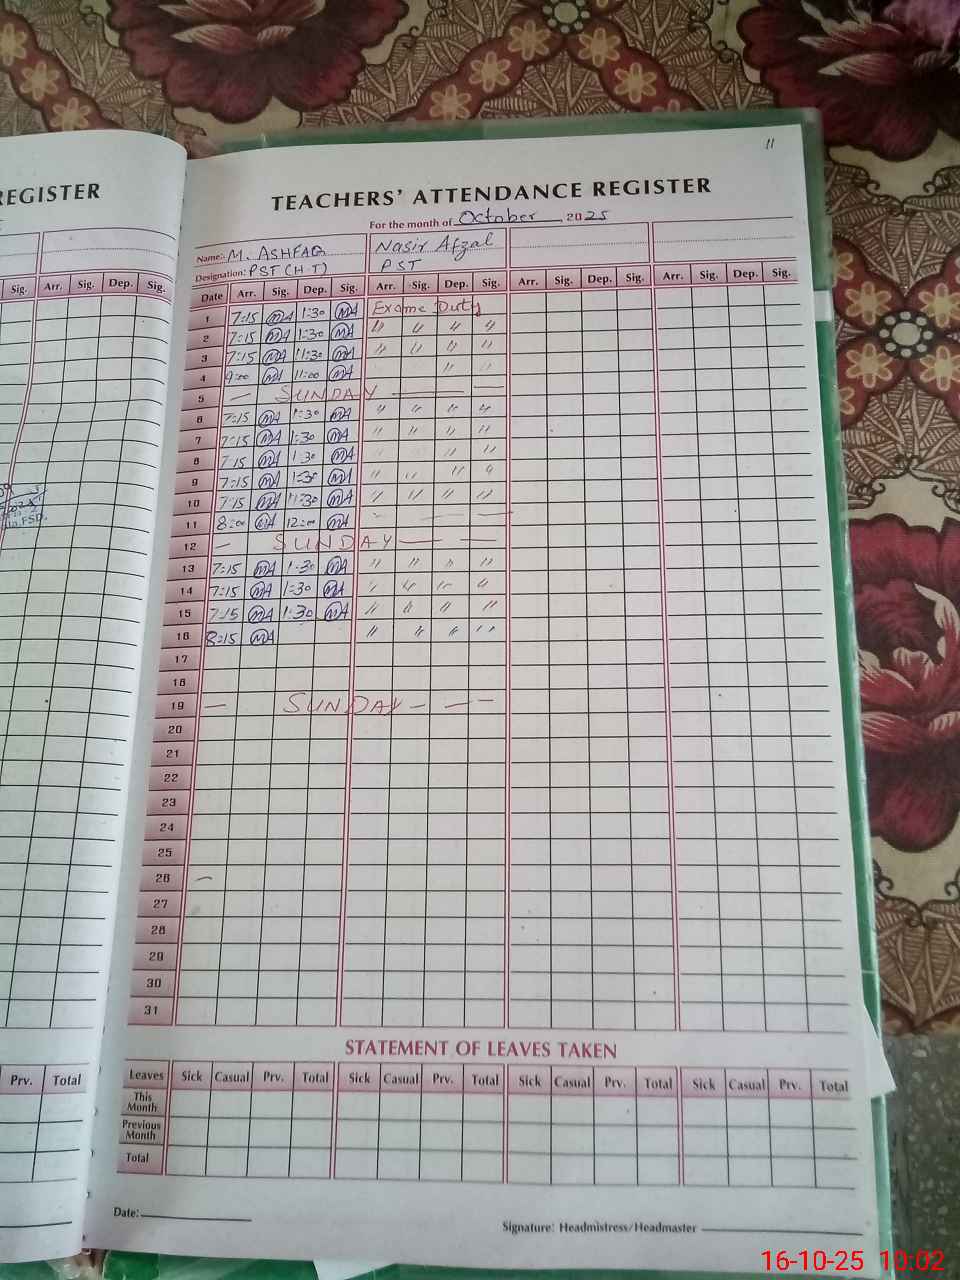 REGISTER
Sig. Arr. Sig. Dep. Sig.
FSD.
Prv. Total
11
TEACHERS' ATTENDANCE REGISTER
For the month of October 2025
Name: M. ASHFAQ Nasir Afzal
Designation: PST (H-T) PST
Date Arr. Sig. Dep. Sig. Arr. Sig. Dep. Sig. Arr. Sig. Dep. Sig. Arr. Sig. Dep. Sig.
1 7:15 MA 1:30 MA Exame Duty
2 7:15 MA 1:30 MA " " " "
3 7:15 MA 11:30 MA " " " "
4 9:00 MA 11:00 MA " "
5 — SUNDAY — — —
6 7:15 MA 1:30 MA " " " "
7 7:15 MA 1:30 MA " " " "
8 7:15 MA 1:30 MA " " " "
9 7:15 MA 1:30 MA " " " "
10 7:15 MA 1:30 MA " " " "
11 8:00 MA 12:00 MA - — —
12 — SUNDAY — —
13 7:15 MA 1:30 MA " " " "
14 7:15 MA 1:30 MA " " " "
15 7:15 MA 1:30 MA " " " "
16 8:15 MA " " " "
17
18
19 — SUNDAY — — —
20
21
22
23
24
25
26 —
27
28
29
30
31
STATEMENT OF LEAVES TAKEN
Leaves Sick Casual Prv. Total Sick Casual Prv. Total Sick Casual Prv. Total Sick Casual Prv. Total
This
Month
Previous
Month
Total
Date:
Signature: Headmistress/Headmaster
16-10-25 10:02